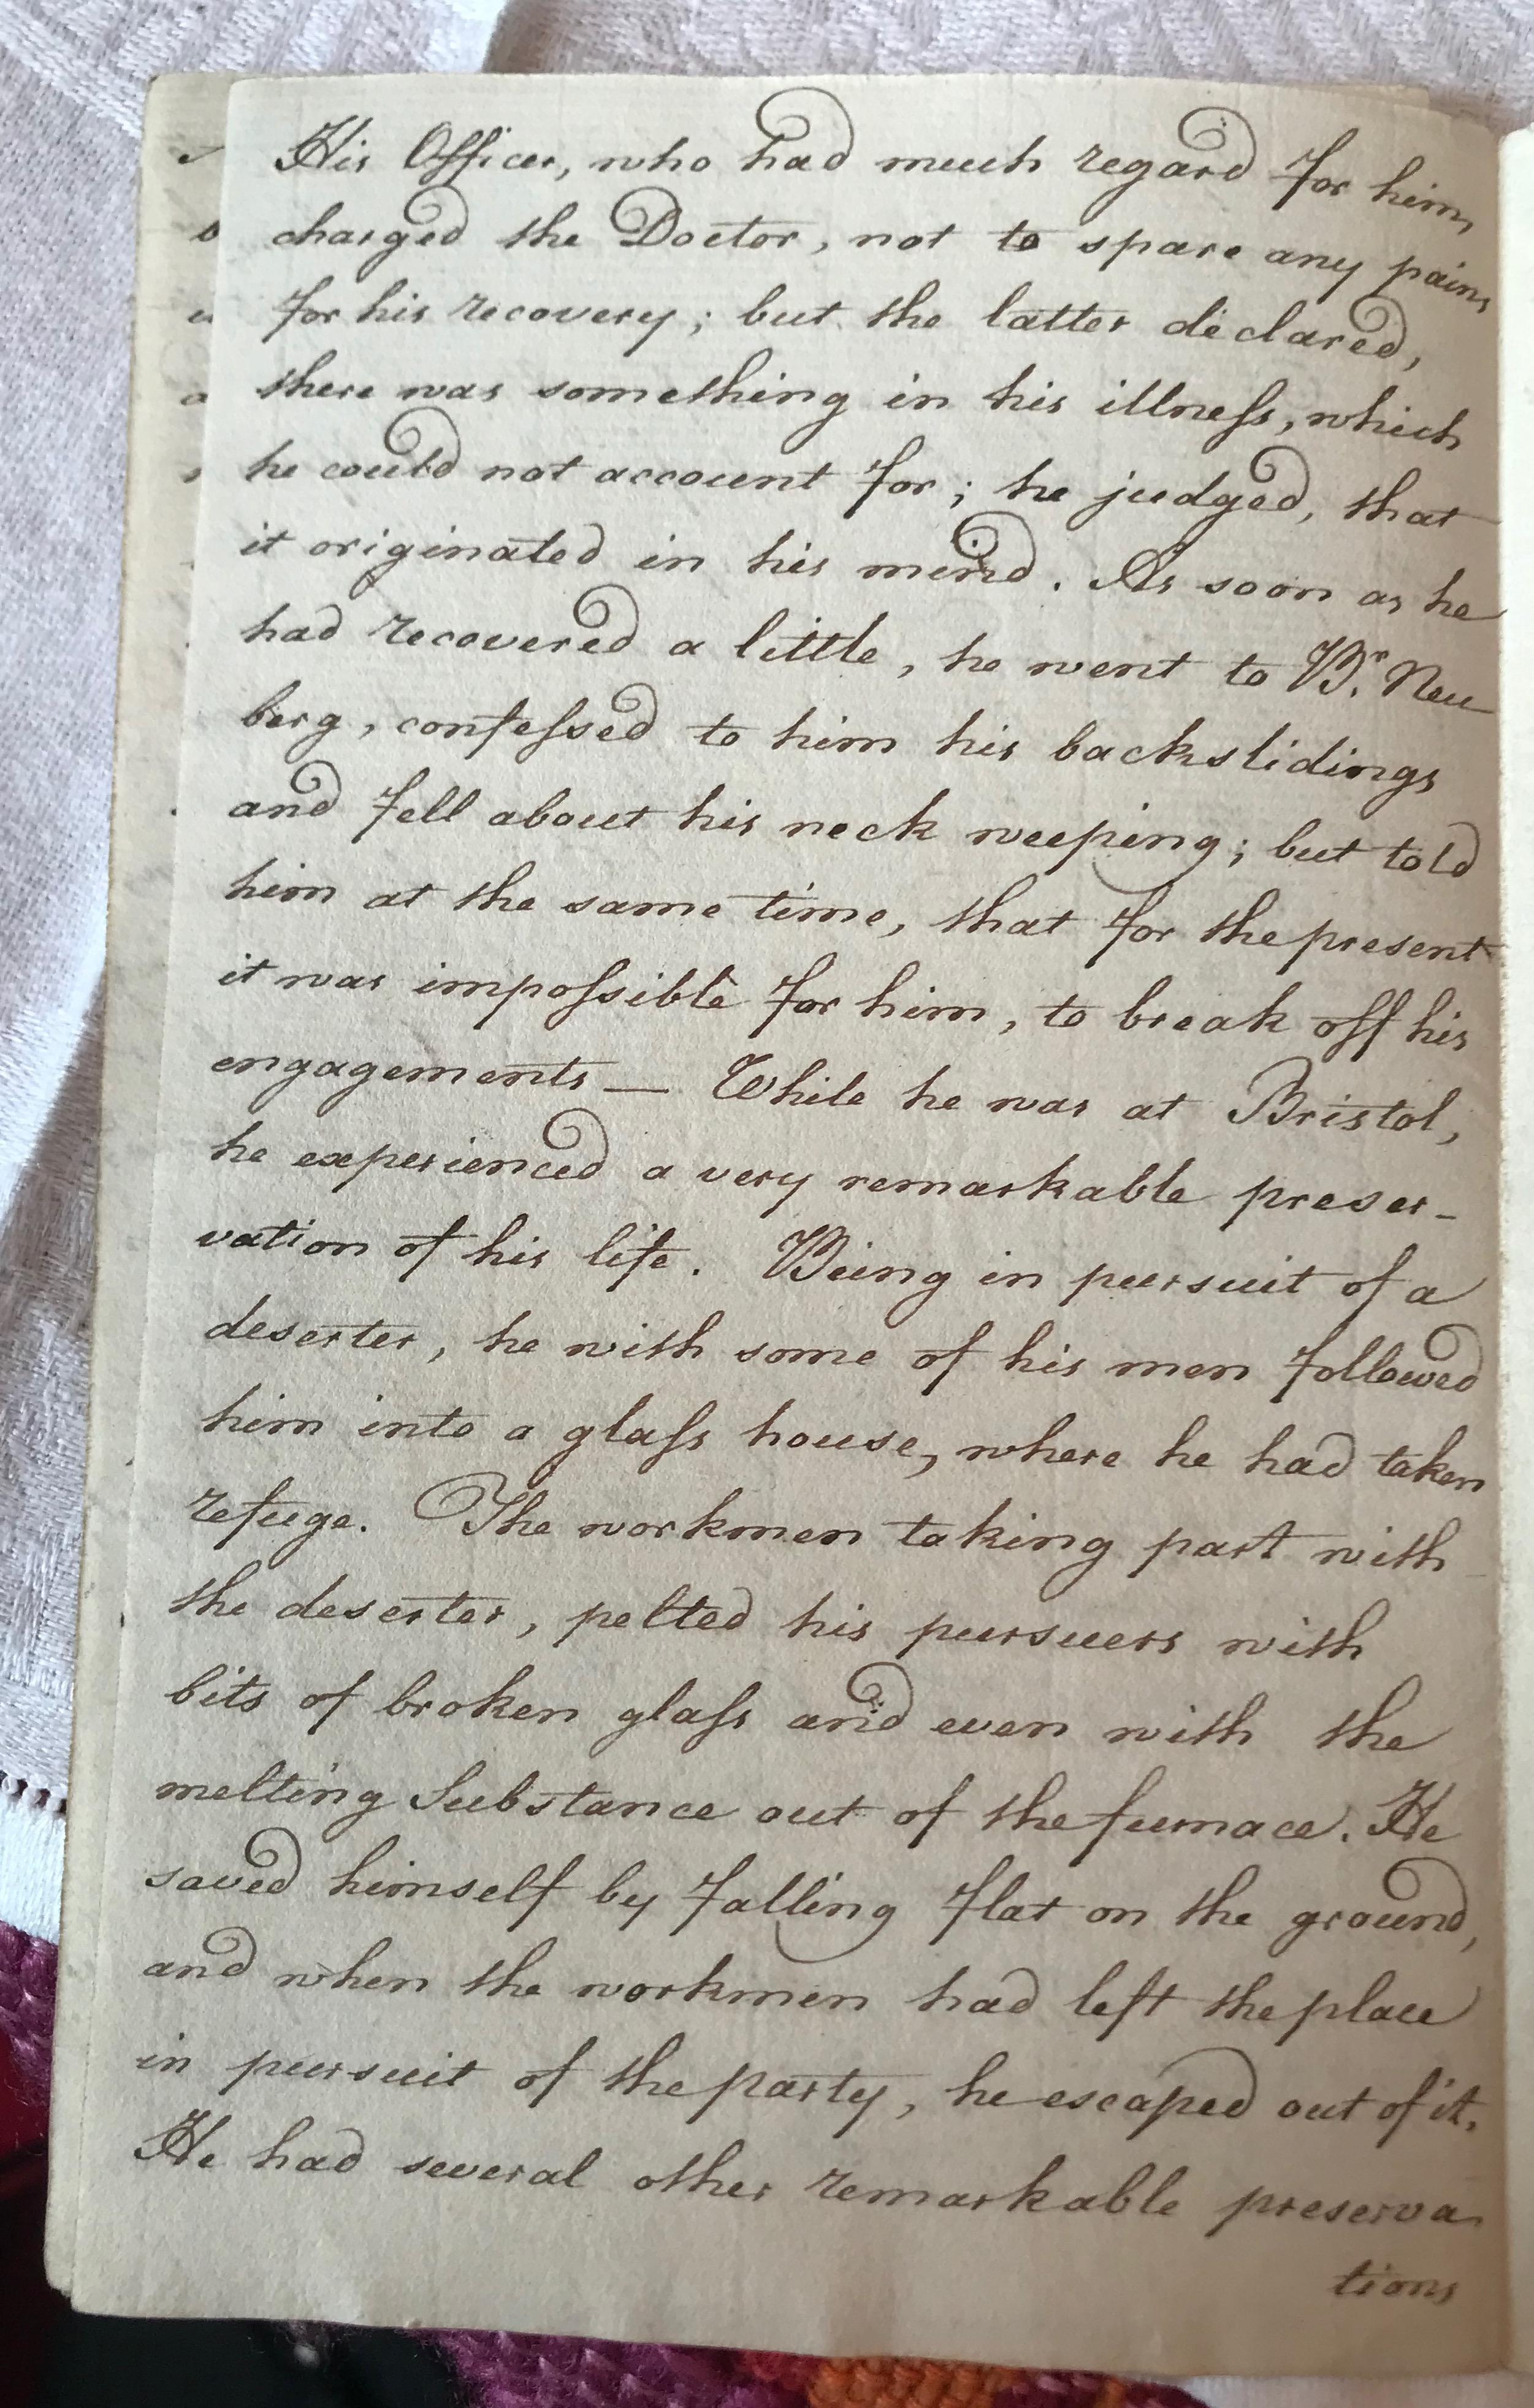 His Officer, who had much regard for him,
charged the Doctor, not to spare any pains
for his recovery; but the latter declared,
there was something in his illneſs, which
he could not account for; he judged, that
it originated in his mind. As soon as he
had recovered a little, he went to Br. Neu
berg, confeſsed to him his backslidings
and fell about his neck weeping; but told
him at the same time, that for the present
it was impoſsible for him, to break off his
engagements — While he was at Bristol,
he experienced a very remarkable preser-
vation of his life. Being in pursuit of a
deserter, he with some of his men followed
him into a glaſs house, where he had taken
refuge. The workmen taking part with
the deserter, pelted his pursuers with
bits of broken glaſs and even with the
melting Substance out of the furnace. He
saved himself by falling flat on the ground,
and when the workmen had left the place
in pursuit of the party, he escaped out of it.
He had several other remarkable preserva
tions